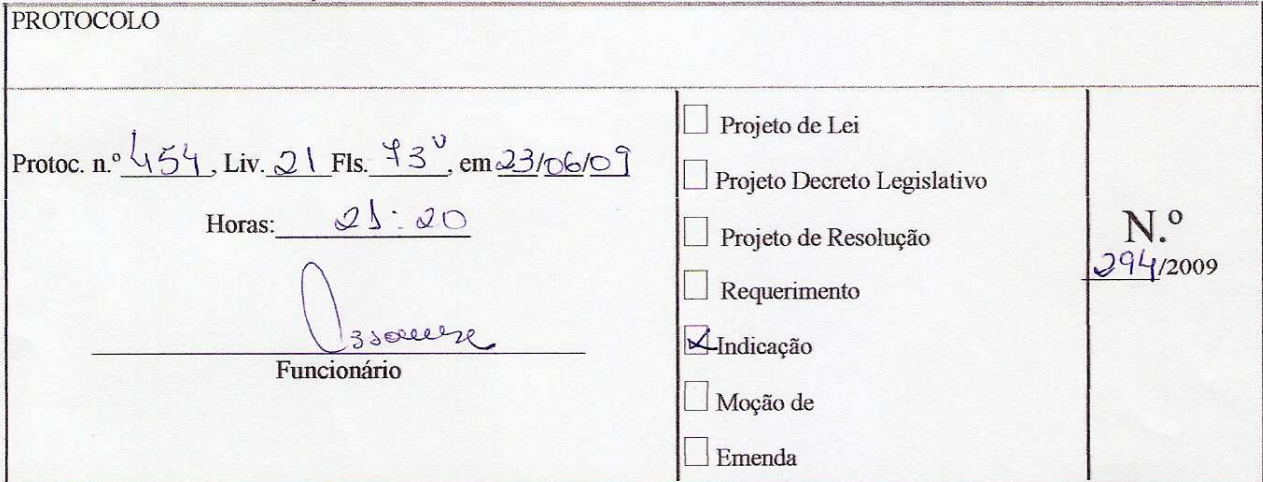 PROTOCOLO
Protoc. n.º 454, Liv. 21 Fls. 73v, em 23/06/09
Horas: 21:20
Funcionário
Projeto de Lei
Projeto Decreto Legislativo
Projeto de Resolução
Requerimento
Indicação
Moção de
Emenda
N.º
294/2009